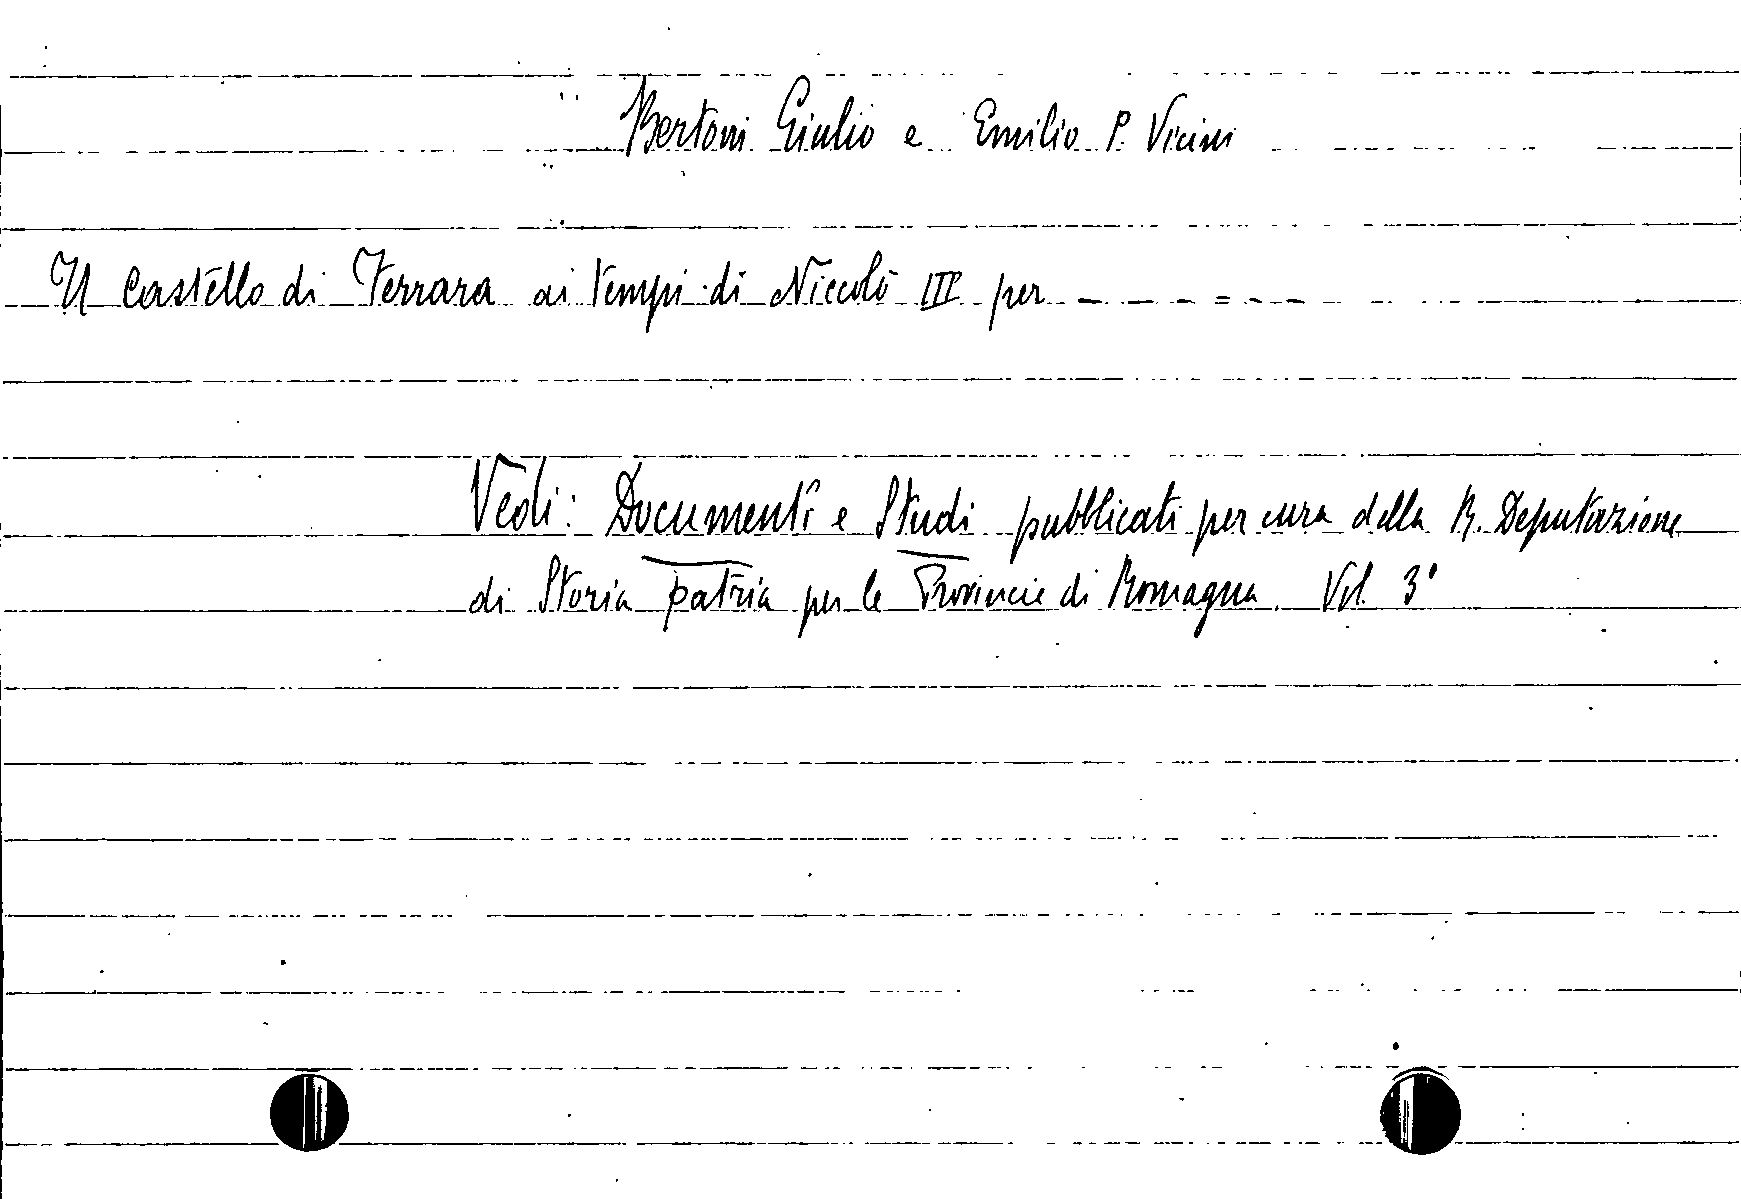 Bertoni Giulio e Emilio P. Vicini
Il Castello di Ferrara ai tempi di Niccolò III per - - - = - - -
Vedi: Documenti e Studi pubblicati per cura della R. Deputazione
di Storia patria per le Provincie di Romagna. Vol. 3°